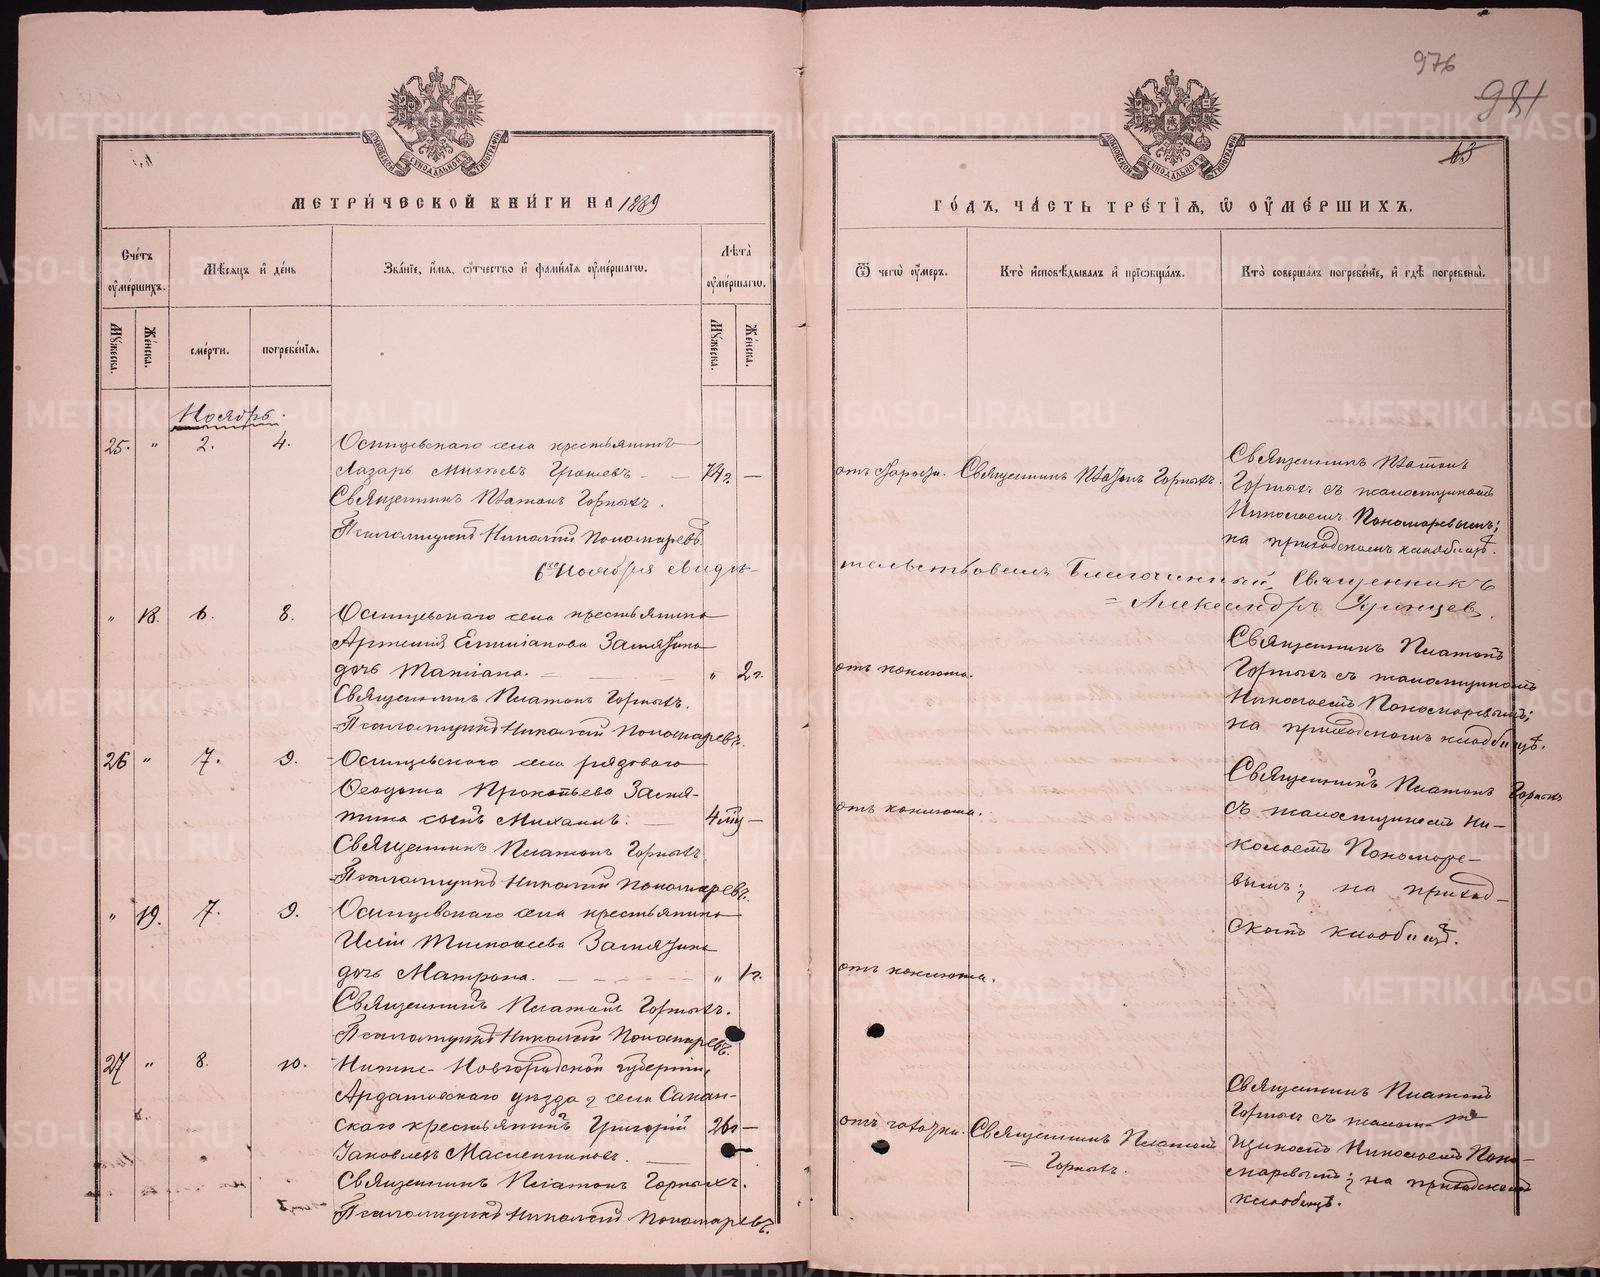 976
981
63
МЕТРИ́ЧЕСКОЙ КНИ́ГИ НА 1889
ГО́ДЪ, ЧА́СТЬ ТРЕ́ТІѦ, Ѡ ОУ҆МЕ́РШИХЪ.
Сче́тъ оу҆ме́ршихъ.
Мѣ́сяцъ и҆ де́нь
Зва́нїе, и҆́мя, ѻ҆́тчество и҆ фами́лїя оу҆ме́ршагѡ.
Лѣ́та оу҆ме́ршагѡ.
Мꙋ́жеска.
Же́нска.
сме́рти.
погребе́нїя.
Мꙋ́жеска.
Же́нска.
Ѿ чегѡ̀ оу҆́меръ.
Кто̀ и҆сповѣ́дывалъ и҆ прїѡбща́лъ.
Кто̀ соверша́лъ погребе́нїе, и҆ гдѣ̀ погребены̀.
Ноябрь.
25. " 2. 4.
Осинцевскаго села крестьянинъ
Лазарь
74 г. —
Священникъ Платонъ Горныхъ.
Псаломщикъ Николай Пономаревъ.
отъ Священникъ Платонъ Горныхъ.
Священникъ Платонъ
Горныхъ съ псаломщикомъ
Николаемъ Пономаревымъ;
на приходскомъ кладбищѣ.
6го Ноября свидѣ-
тельствовалъ Благочинный, Священникъ
Александръ
" 18. 6. 8.
Осинцевскаго села крестьянина
Артемія Емиліанова Замятина
дочь Татіана.
" 2 г.
Священникъ Платонъ Горныхъ.
Псаломщикъ Николай Пономаревъ.
отъ поноса.
Священникъ Платонъ
Горныхъ съ псаломщикомъ
Николаемъ Пономаревымъ;
на приходскомъ кладбищѣ.
26 " 7. 9.
Осинцевскаго села рядоваго
Ѳеодота Прокопьева Замя-
тина сынъ Михаилъ.
4 мц —
Священникъ Платонъ Горныхъ.
Псаломщикъ Николай Пономаревъ.
отъ поноса.
Священникъ Платонъ Горныхъ
съ псаломщикомъ Ни-
колаемъ Пономаре-
вымъ; на приход-
скомъ кладбищѣ.
" 19. 7. 9.
Осинцевскаго села крестьянина
Иліи Тимофеева Замятина
дочь Матрона.
" 1 г.
Священникъ Платонъ Горныхъ.
Псаломщикъ Николай Пономаревъ.
отъ поноса.
27 " 8. 10.
Нижне-Новгородской губерніи,
Ардатовскаго уѣзда, села Сакан-
скаго крестьянинъ Григорій
Іаковлевъ Масленниковъ.
26 г —
Священникъ Платонъ Горныхъ.
Псаломщикъ Николай Пономаревъ.
отъ чахотки. Священникъ Платонъ
Горныхъ.
Священникъ Платонъ
Горныхъ съ псалом-
щикомъ Николаемъ Поно-
маревымъ; на приходскомъ
кладбищѣ.
METRIKI.GASO-URAL.RU